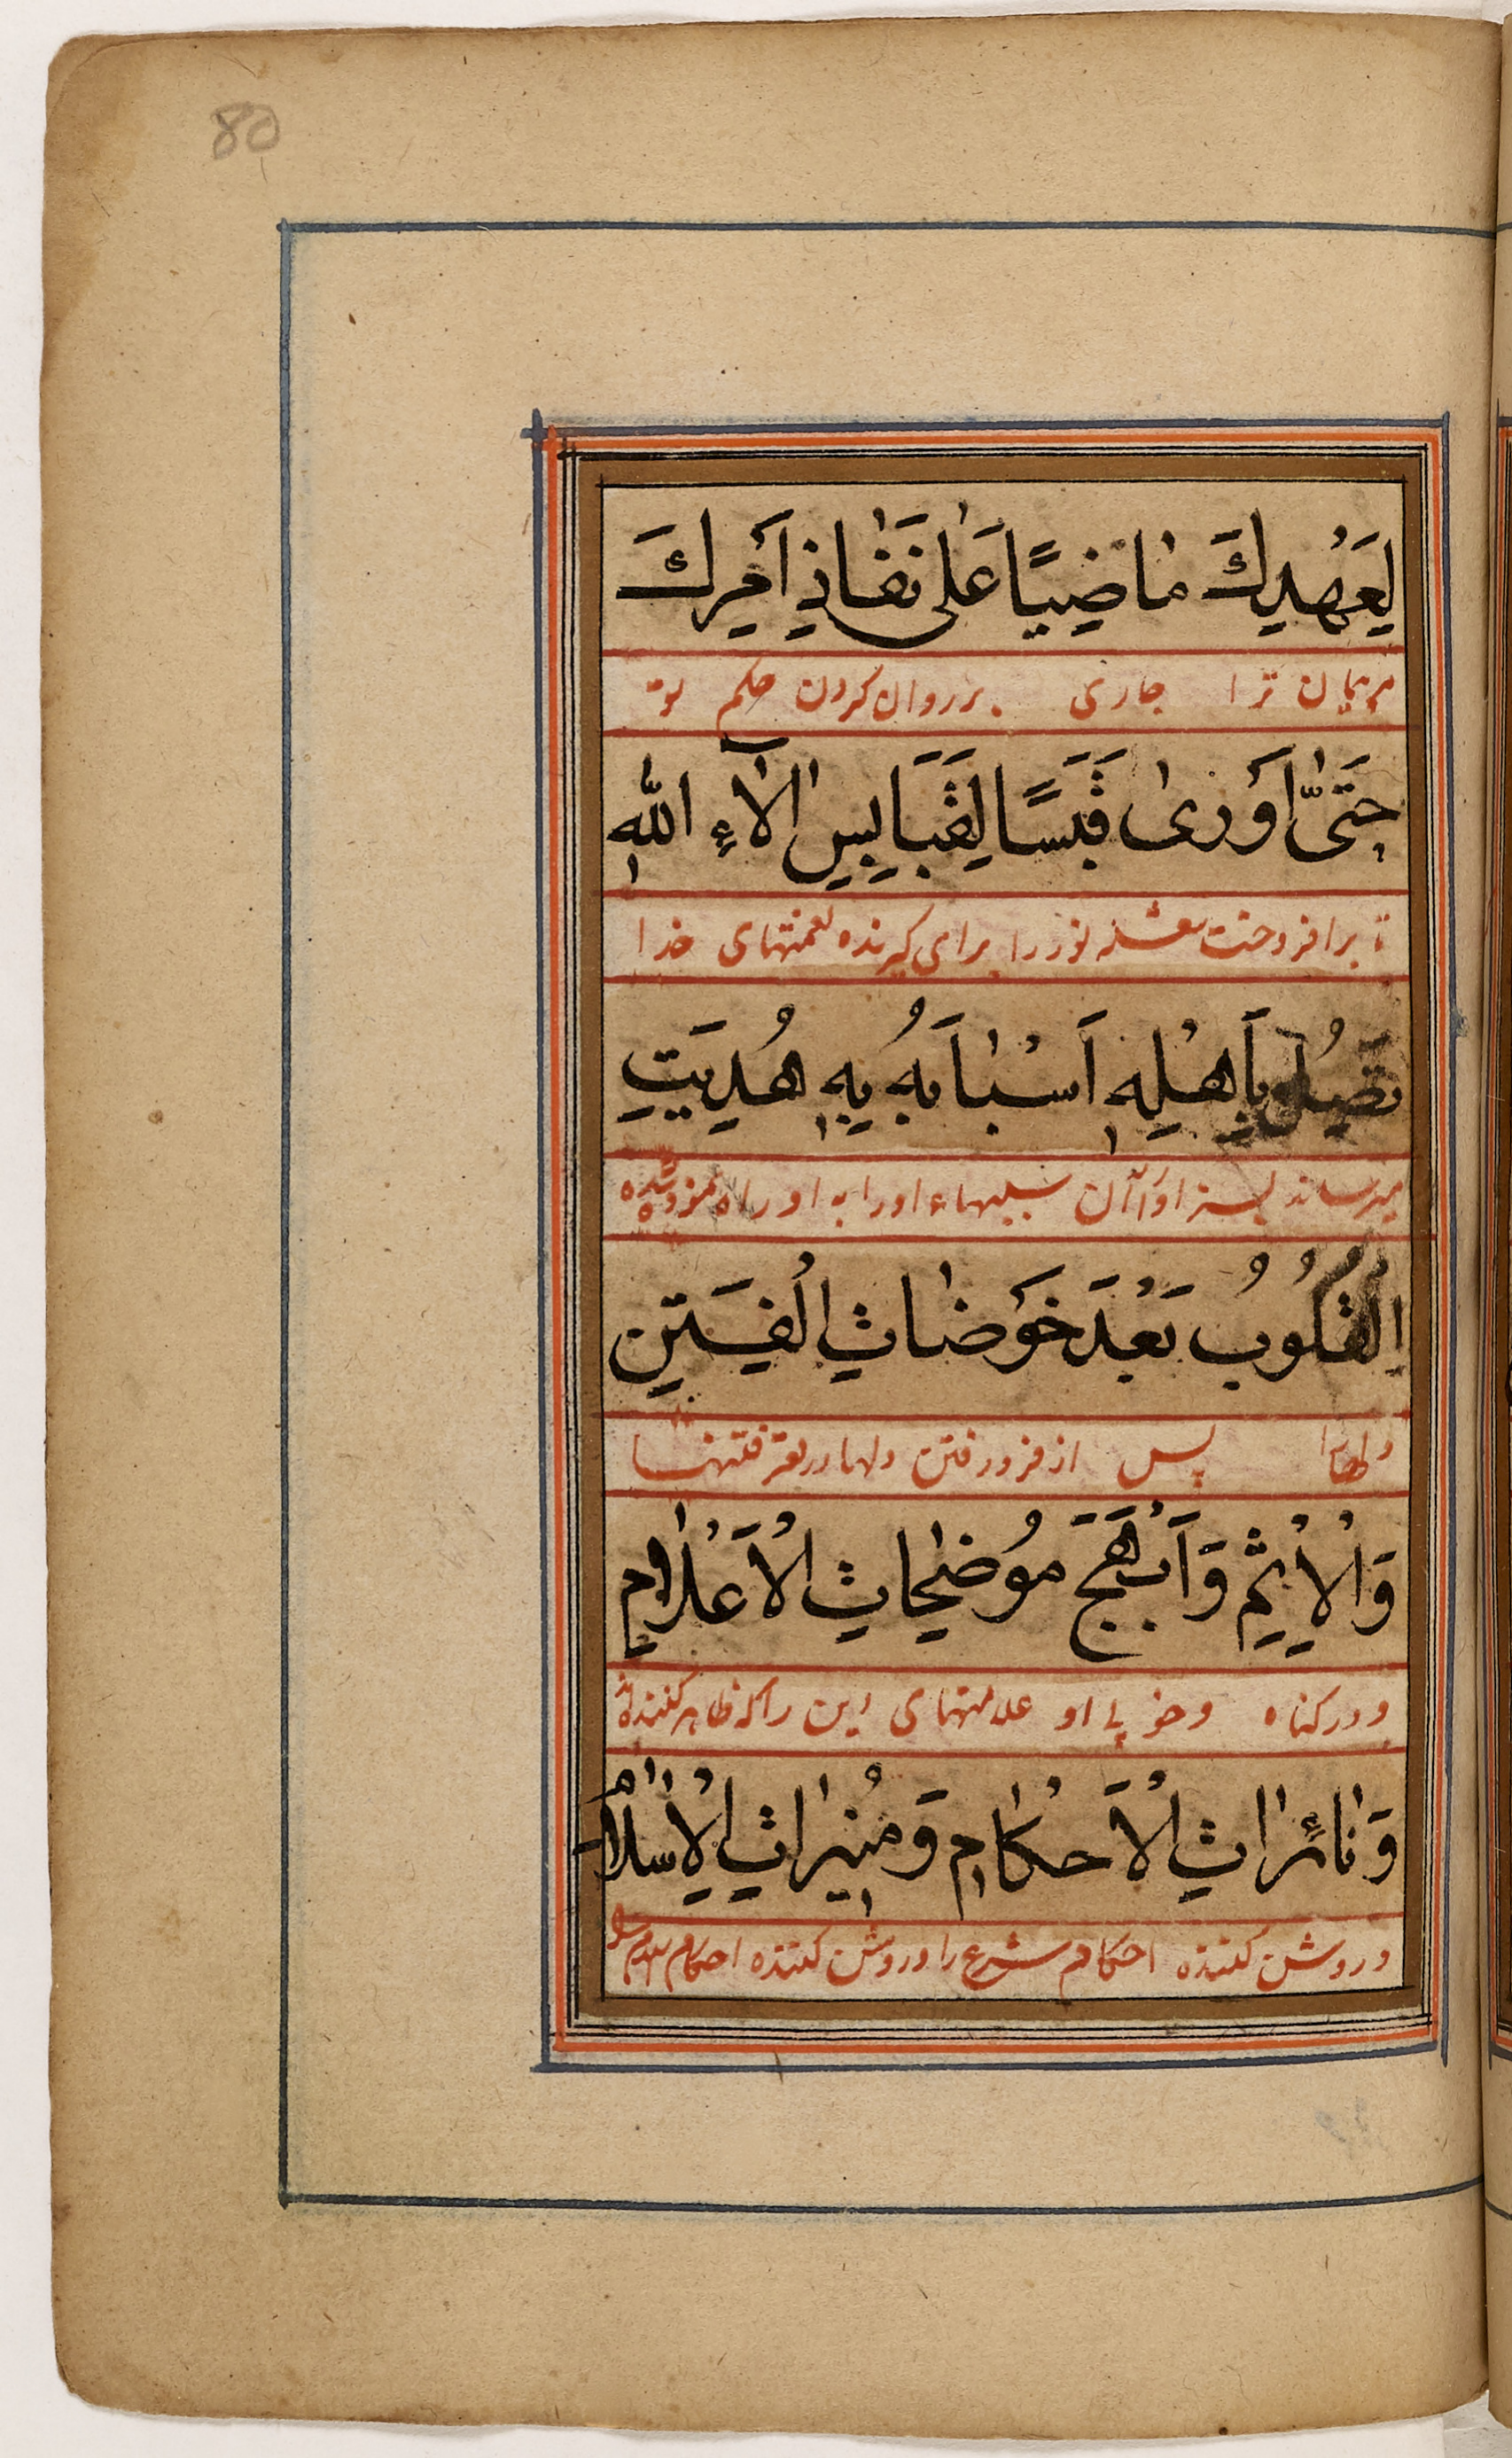 80
لِعَهْدِكَ مَاضِيًا عَلٰى نَفَاذِ اَمْرِكَ
بر پیمان ترا جاری بر روان کردن حکم تو
حَتّٰى اَوْرٰى قَبَسًا لِقَبَابِسِ اٰلَآءِ اللهِ
تا برافروخت شعله نور را برای گیرنده نعمتهای خدا
تَصِلُ بِاَهْلِهٖ اَسْبَابُهُ بِهٖ هُدِيَتِ
میرساند بسزاواران سببهاء او را به او راه نموده شده
الْقُلُوبُ بَعْدَ خَوْضَاتِ الْفِتَنِ
دلها پس از فرو رفتن دلها در فتنها
وَالْاِثْمِ وَاَبْهَجَ مُوضِحَاتِ الْاَعْلَامِ
و در کناه و خوبی او علامتهای این را که ظاهر کننده
وَنَائِرَاتِ الْاَحْكَامِ وَمُنِيرَاتِ الْاِسْلَامِ
و روشن کننده احکام شرع را و روشن کننده احکام